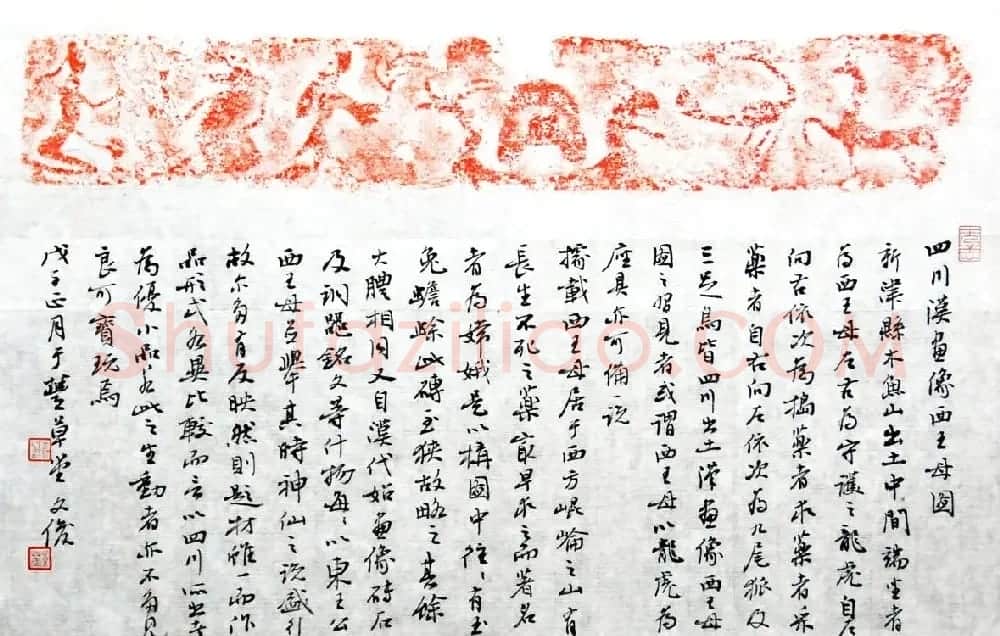 四川漢畫像西王母圖
新津縣木魚山出土中間端坐者
為西王母左右為守護之龍虎自左
向右依次為搗藥者求藥者采
藥者自右向左依次為九尾狐及
三足烏皆四川出土漢畫像西王母
圖之習見者或謂西王母以龍虎為
座具亦可備一說
據載西王母居于西方崐崘之山有
長生不死之藥最早求之而著名
者為嫦娥是以構圖中往〻有玉
兔蟾蜍此磚至狹故略之其餘
大體相同又自漢代始畫像磚石
及銅器銘文等什物每〻以東王公
西王母並舉其時神仙之說盛行
故尔多有反映然則題材雖一而作
品形式各異比較而言以四川所出者
為優小品如此之生動者亦不多見
良可寶玩焉
戊子正月于豐草堂文俊
Shufaziliao.COM